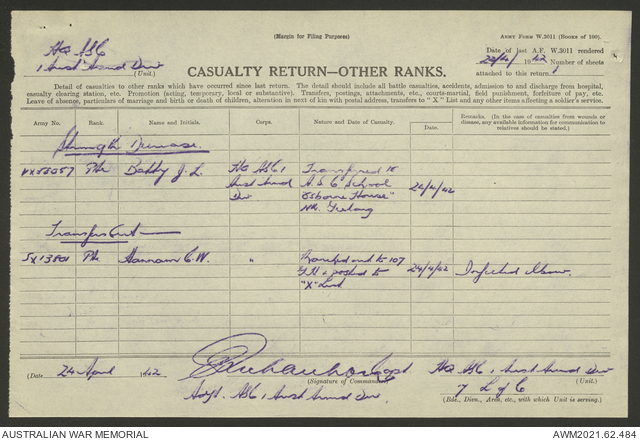 (Margin for Filing Purposes)
ARMY FORM W.3011 (BOOKS of 100).
HQ ASC
1 Aust Armd Div
(Unit.)
Date of last A.F. W.3011 rendered
22/4/ 1942 Number of sheets
attached to this return 1
CASUALTY RETURN—OTHER RANKS.
Detail of casualties to other ranks which have occurred since last return. The detail should include all battle casualties, accidents, admission to and discharge from hospital,
casualty clearing station, etc. Promotion (acting, temporary, local or substantive). Transfers, postings, attachments, etc., courts-martial, field punishment, forfeiture of pay, etc.
Leave of absence, particulars of marriage and birth or death of children, alteration in next of kin with postal address, transfers to "X" List and any other items affecting a soldier's service.
Army No. Rank. Name and Initials. Corps. Nature and Date of Casualty. Date. REMARKS. (In the case of casualties from wounds or disease, any available information for communication to relatives should be stated.)
Strength Decrease.
Pte J. L. HQ ASC 1 Transferred to
Aust Armd A.S.C School
Div "Osborne House" 24/4/42
Nr. Geelong
Transfers Out
SX13801 Pte. Hannam C.W. " 107
posted to 24/4/42 Infected Elbow.
"X" List
(Date 24 April 1942
Capt
(Signature of Commander.)
Adjt. ASC 1 Aust Armd Div
HQ ASC 1 Aust Armd Div
(Unit.)
7 L of C
(Bde., Divn., Area, etc., with which Unit is serving.)
AUSTRALIAN WAR MEMORIAL
AWM2021.62.484